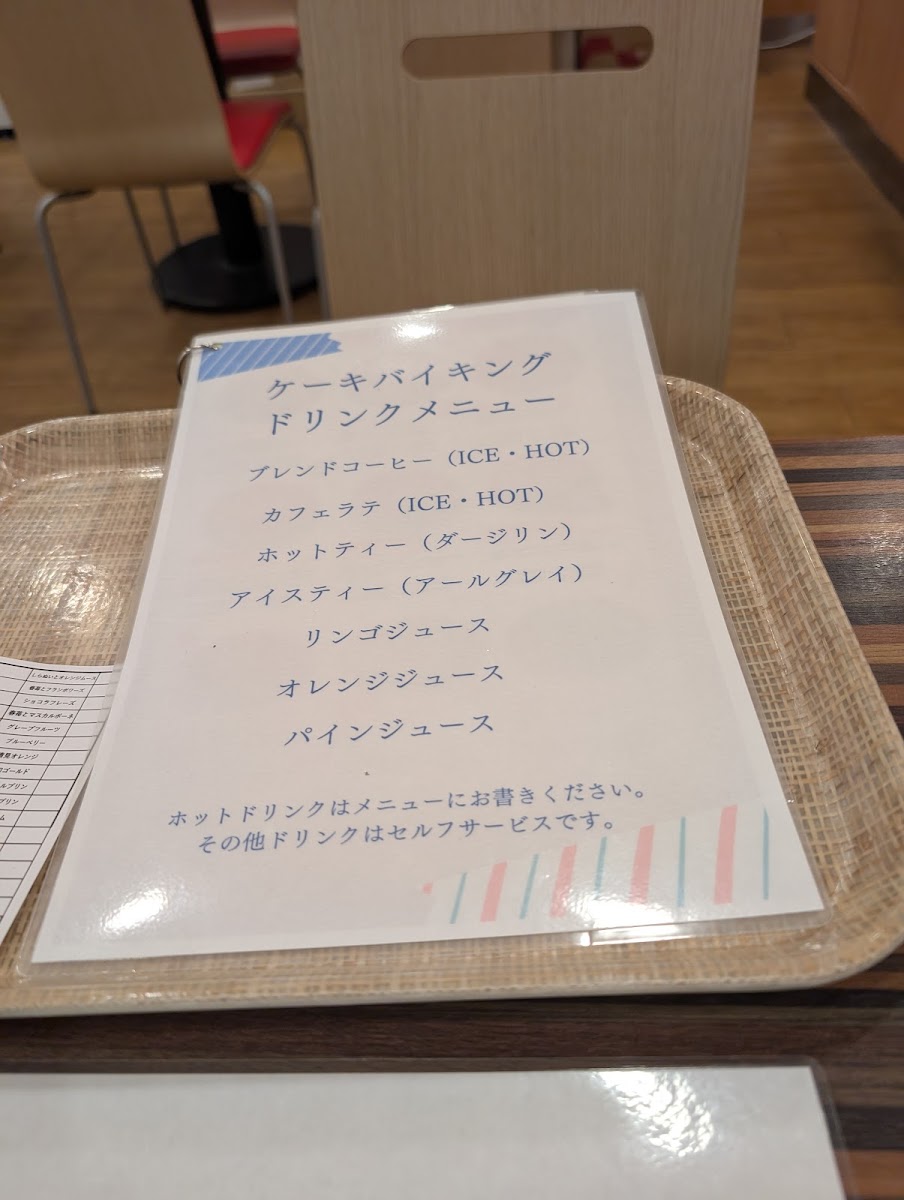 ケーキバイキング
ドリンクメニュー
ブレンドコーヒー（ICE・HOT）
カフェラテ（ICE・HOT）
ホットティー（ダージリン）
アイスティー（アールグレイ）
リンゴジュース
オレンジジュース
パインジュース
ホットドリンクはメニューにお書きください。
その他ドリンクはセルフサービスです。
しらぬいとオレンジムース
春苺とフランボワーズ
ショコラフレーズ
春苺とマスカルポーネ
グレープフルーツ
ブルーベリー
清見オレンジ
ゴールド
ルプリン
プリン
ム